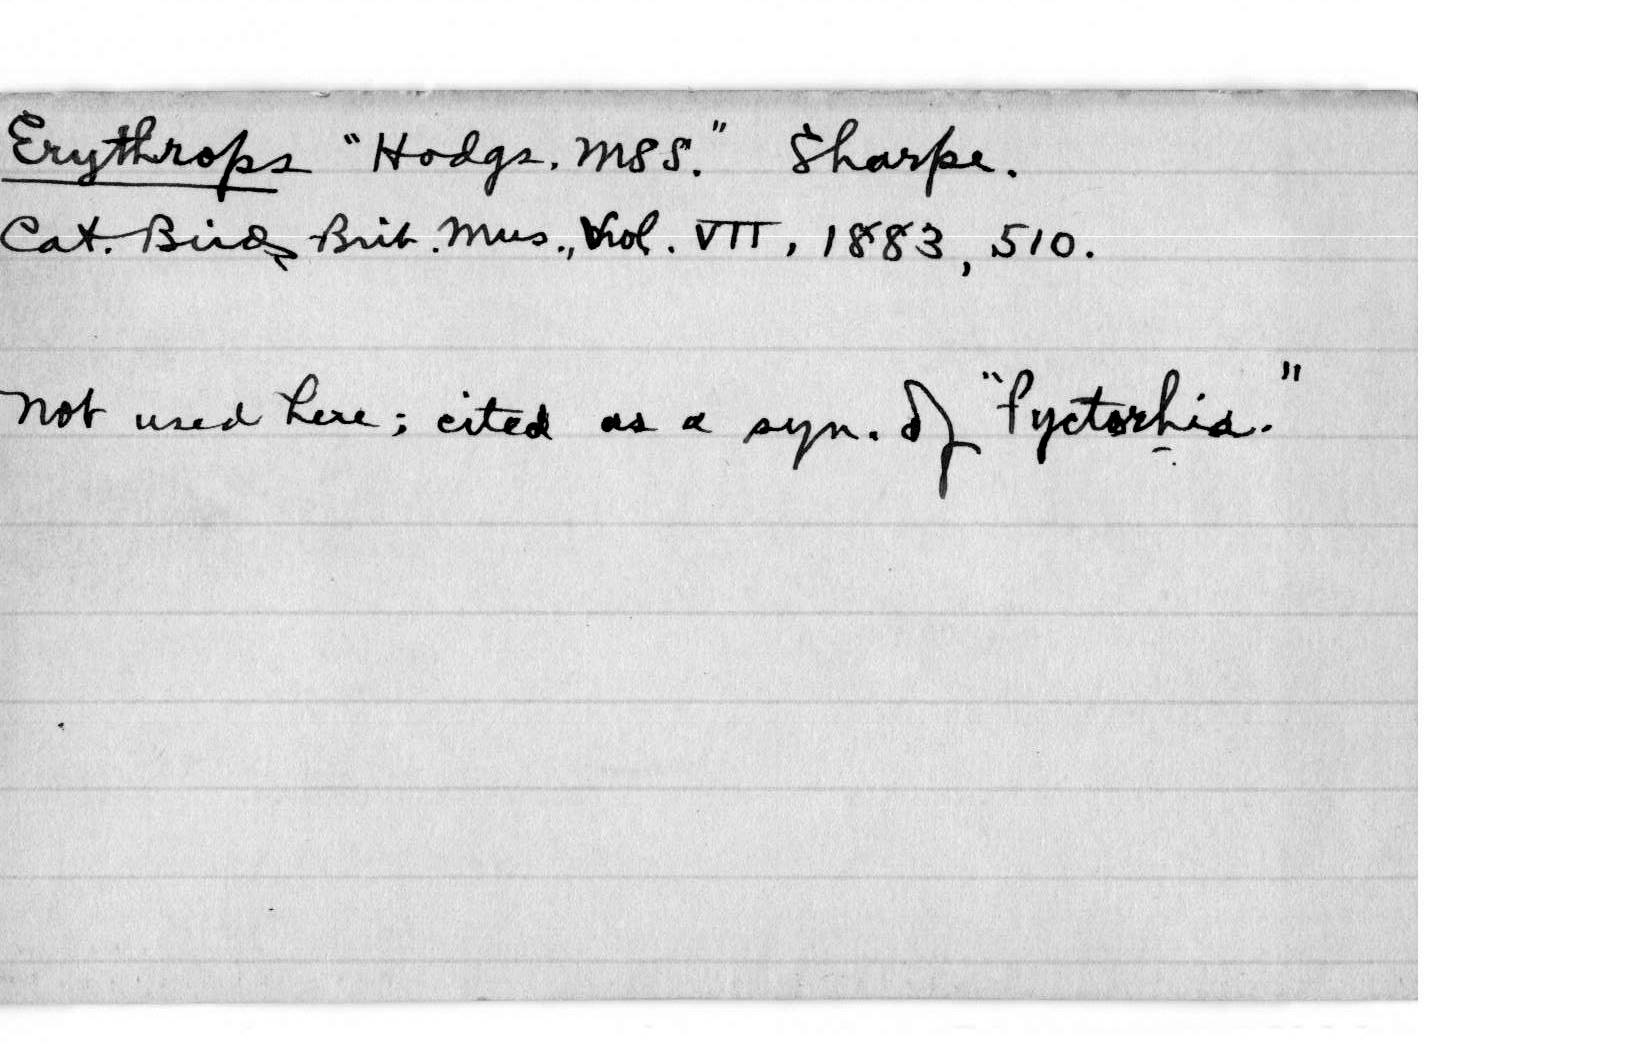 Erythrops "Hodgs. MSS." Sharpe.
Cat. Birds Brit. Mus., Vol. VII, 1883, 510.
Not used here; cited as a syn. of "Pyctorhis."